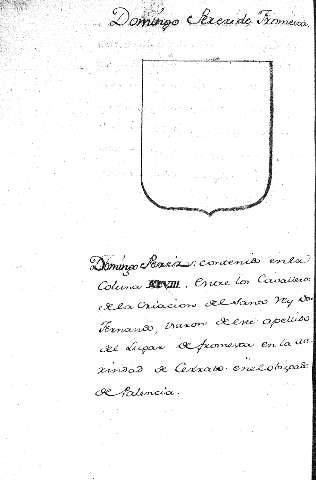 Domingo Perez de Fromesta.
Domingo Perez: contenido en la
Coluna XXVIII. Entre los Cavalleros
de la Criacion del Santo Rey Don
Fernando, usaron de este apellido
del Lugar de fromesta en la me
rindad de Cerrato en el obispado
de Palencia.